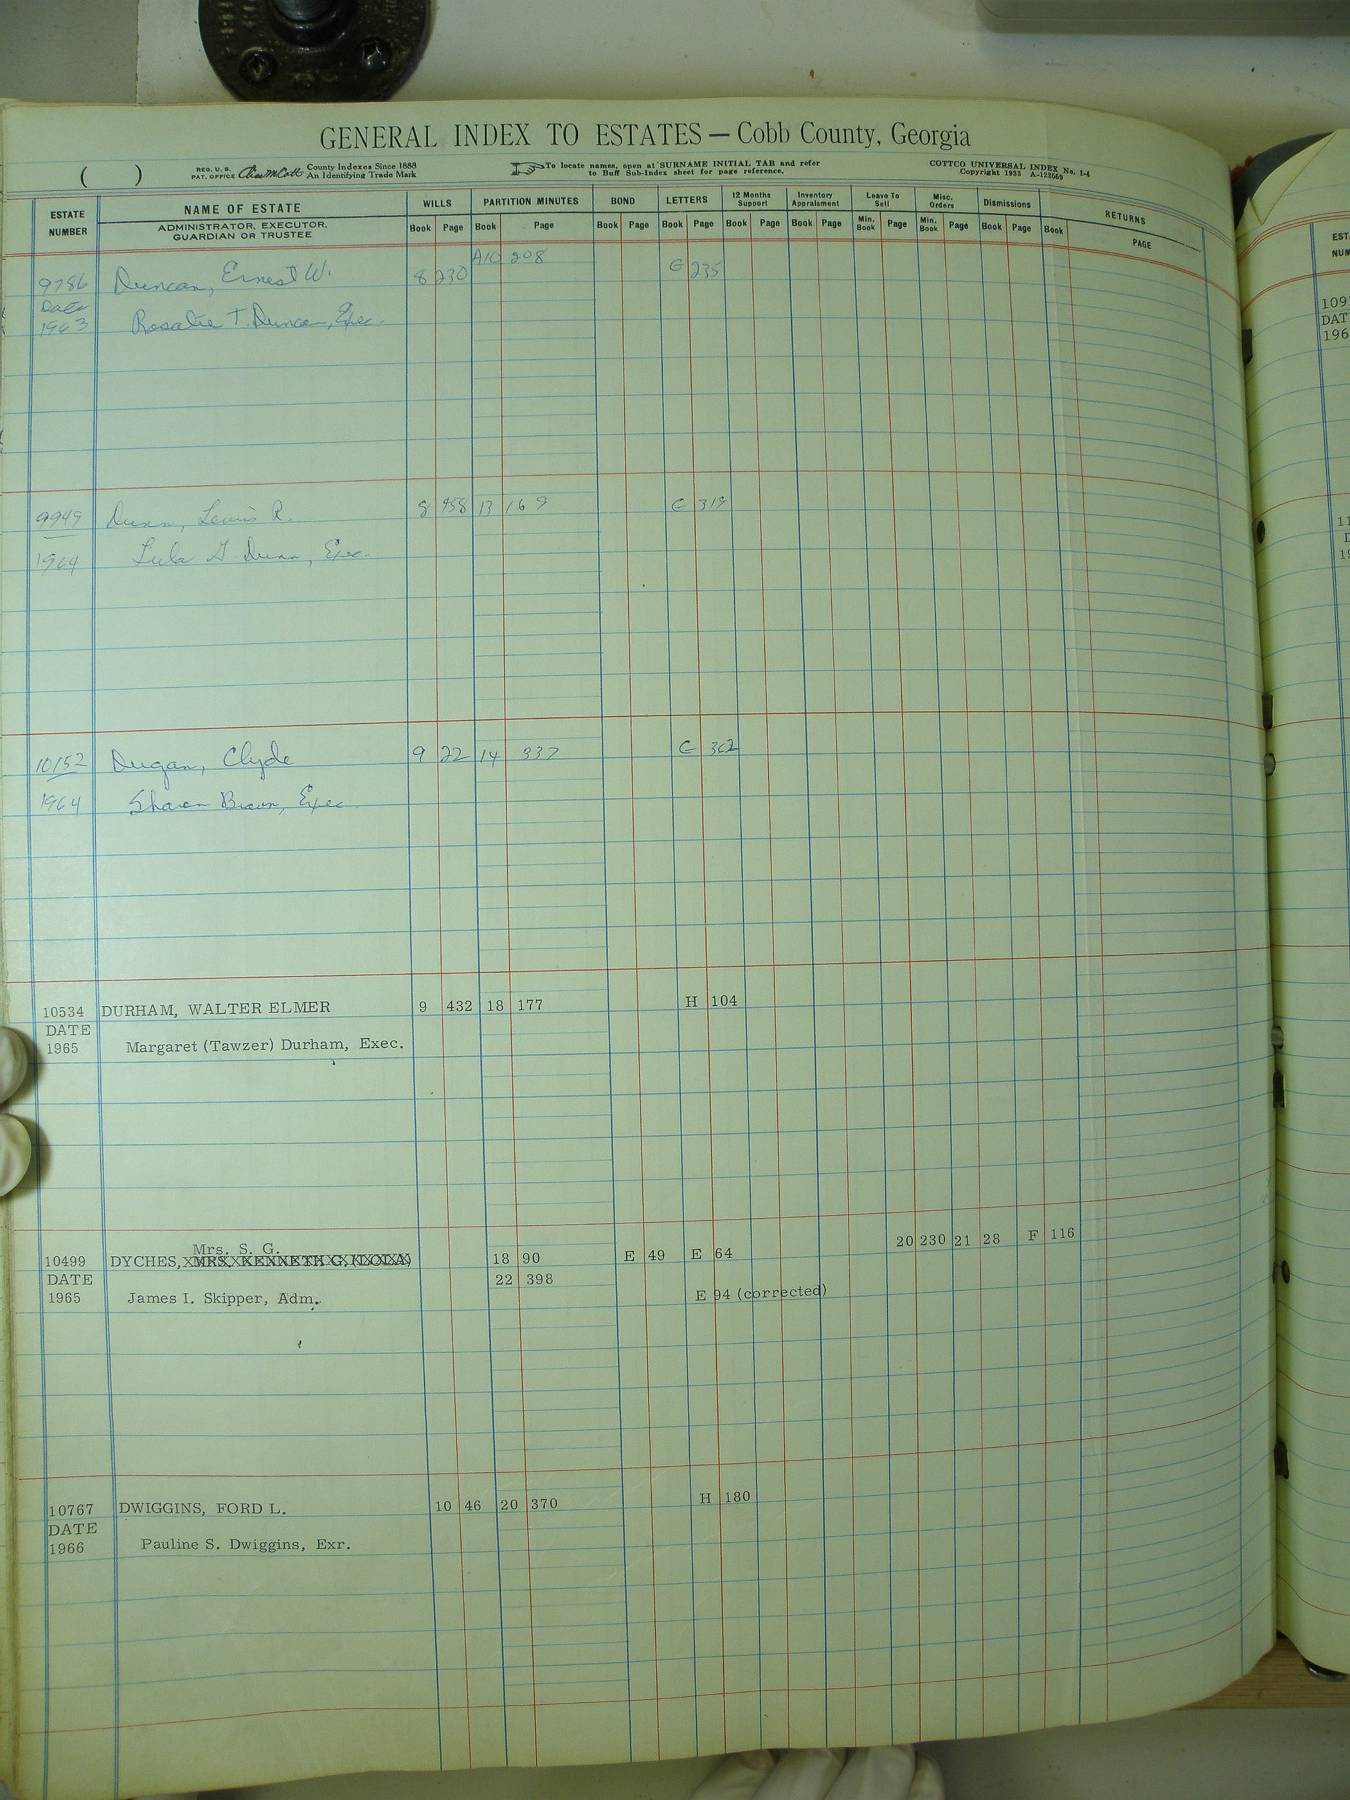 GENERAL INDEX TO ESTATES — Cobb County, Georgia
( )
REG. U. S. PAT. OFFICE
County Indexes Since 1888
An Identifying Trade Mark
To locate names, open at SURNAME INITIAL TAB and refer
to Buff Sub-Index sheet for page reference.
COTTCO UNIVERSAL INDEX No. 1-4
Copyright 1933
ESTATE NUMBER
NAME OF ESTATE
ADMINISTRATOR, EXECUTOR,
GUARDIAN OR TRUSTEE
WILLS PARTITION MINUTES BOND LETTERS 12 Months Support Inventory Appraisment Leave To Sell Misc. Orders Dismissions RETURNS
Book Page Book Page Book Page Book Page Book Page Book Page Min. Book Page Min. Book Page Book Page Book PAGE
208
9786 Duncan, Ernest W. 8 230 G 235
Date
1963 Rosalie T. Duncan, Exec.
9949 Dunn, Lewis R. 8 458 13 169 G 319
1964 Lula G Dunn, Exec.
10152 Dugan, Clyde 9 22 14 337 G 362
1964 Sharon Brown, Exec.
10534 DURHAM, WALTER ELMER 9 432 18 177 H 104
DATE
1965 Margaret (Tawzer) Durham, Exec.
Mrs. S. G.
10499 DYCHES, MRS. KENNETH G. 18 90 E 49 E 64 20 230 21 28 F 116
DATE 22 398
1965 James I. Skipper, Adm. E 94 (corrected)
10767 DWIGGINS, FORD L. 10 46 20 370 H 180
DATE
1966 Pauline S. Dwiggins, Exr.